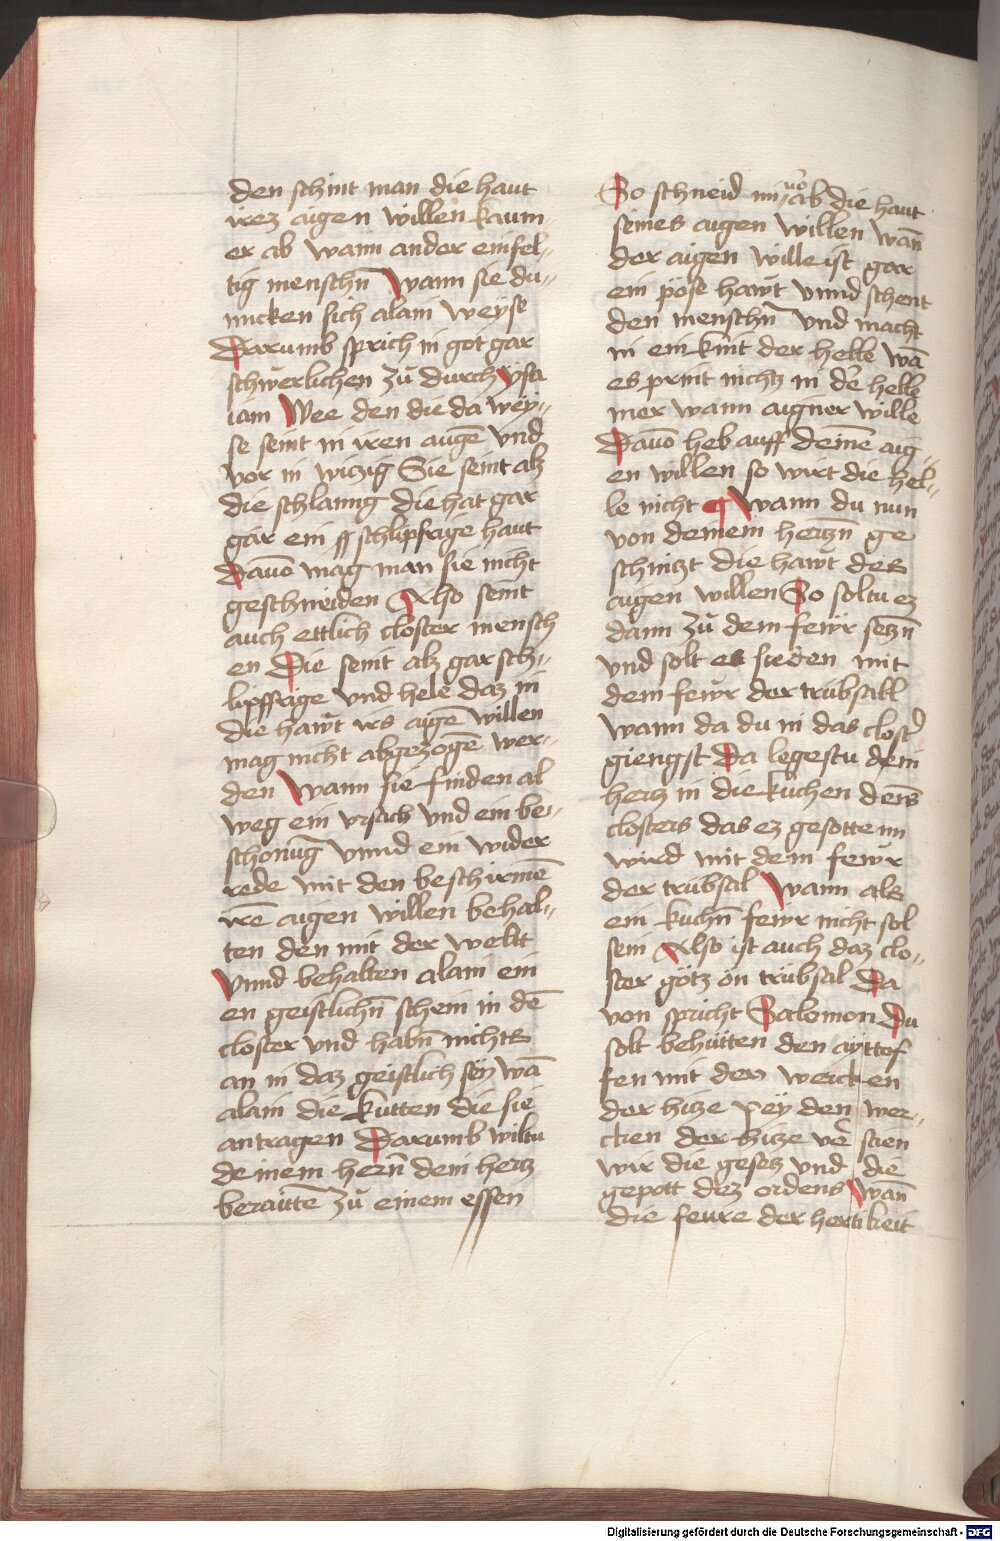 den schint man die haut
irez aigen willen kaum-
er ab wann ander einfel-
tig menschn̄ Wann sie du-
nncken sich alain weyse
Darumb sprich in got gar
schwerlichen zů durch ysa
iam Wee den die da wey-
se seint in iren augē vnd
vor in witzig Sie seint alz
die schlanng die hat gar
gar ein schlipfrige haut
Dauō mag man sie nicht
geschneiden Also seint
auch ettlich closter mensch
en Die seint alz gar sch-
lipffrige vnd hele daz in
die hawt irs aigē willen
mag nicht abgezogē wer-
den Wann sie finden al
weg ein vrsach vnd ein be-
schonūg vnnd ein wider
rede mit den beschirmē
irē aigen willen behal-
ten den mit der weltt
Vnnd behalten alain ein
en geistlichn̄ schein in dē
closter vnd habn̄ nichts
an in daz geistlich sey wā
alain die kutten die sie
antragen Darumb wiltu
deinem hern̄ dein hertz
beraittē zů einem essen
So schneid im uō ab die haut
seines aigen willen wan̄
der aigen wille ist gar
ein pöse hawt vnnd schent
den menschn̄ vnd macht
in ein kint der helle wā
es print nichtz in der helle
mer wann aigner wille
Dauō heb auff deinē aig-
en willen so wirt die hel-
le nicht ¶ Wann du nun
von deinem hertzn̄ ge
schintzt die hawt des
aigen willen So soltu ez
dann zů dem fewr setzn̄
vnd solt es sieden mit
dem fewr der trubsall
wann da du in das closter
giengst Da legestu dein
hertz in die kuchen dens
closters das ez gesotten
wird mit dem fewr
der trubsal Wann als
ein kuchn̄ fewr nicht sol
sein Also ist auch daz clo-
ster götz on trübsal Da
von spricht Salomon Du
solt behütten den ayttof
fen mit den wercken
der hitze Pey den wer-
cken der hitze vē stien
wir die gesetz vnd die
gepott dez ordens Wan̄
die feure der hertikeit
Digitalisierung gefördert durch die Deutsche Forschungsgemeinschaft - DFG